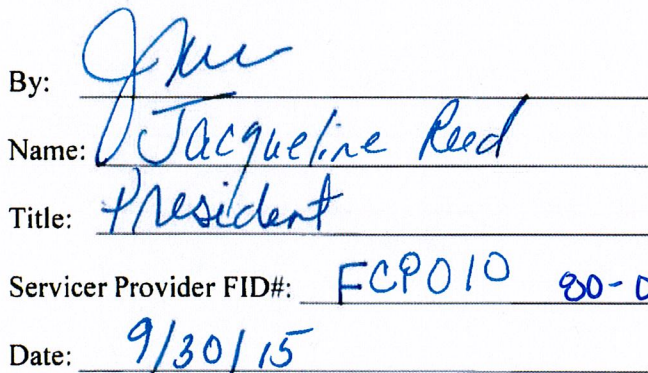 By:
Name: Jacqueline Reed
Title: President
Servicer Provider FID#: FCP010 80-0
Date: 9/30/15